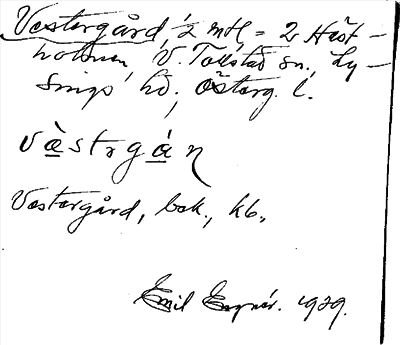 Vestergård, 1/2 mtl = 2 Häst-
holmen, V. Tollstad sn, Ly-
sings hd, Österg. l.
västrgán
Vestergård, bek., kb.,
Emil 1929.